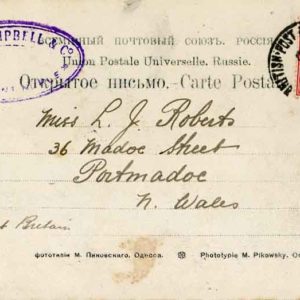 ВСЕМІРНЫЙ ПОЧТОВЫЙ СОЮЗЪ. РОССІЯ
Union Postale Universelle. Russie.
Открытое письмо.—Carte Postal
PBELL & Co
BRITISH POST
Miss L. J. Roberts
36 Madoc Street
Portmadoc
N. Wales
t Britain
фототипія М. Пиковскаго, Одесса.
Phototypie M. Pikowsky, O